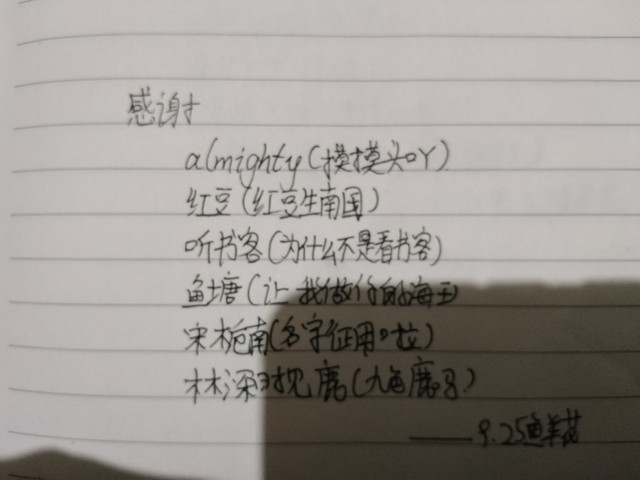 感谢
almighty(摸摸头吖)
红豆(红豆生南国)
听书客(为什么不是看书客)
鱼塘(让我做你的海王
宋栀南(名字征用啦)
林深时见鹿(九色鹿吗)
——9.25鲜花